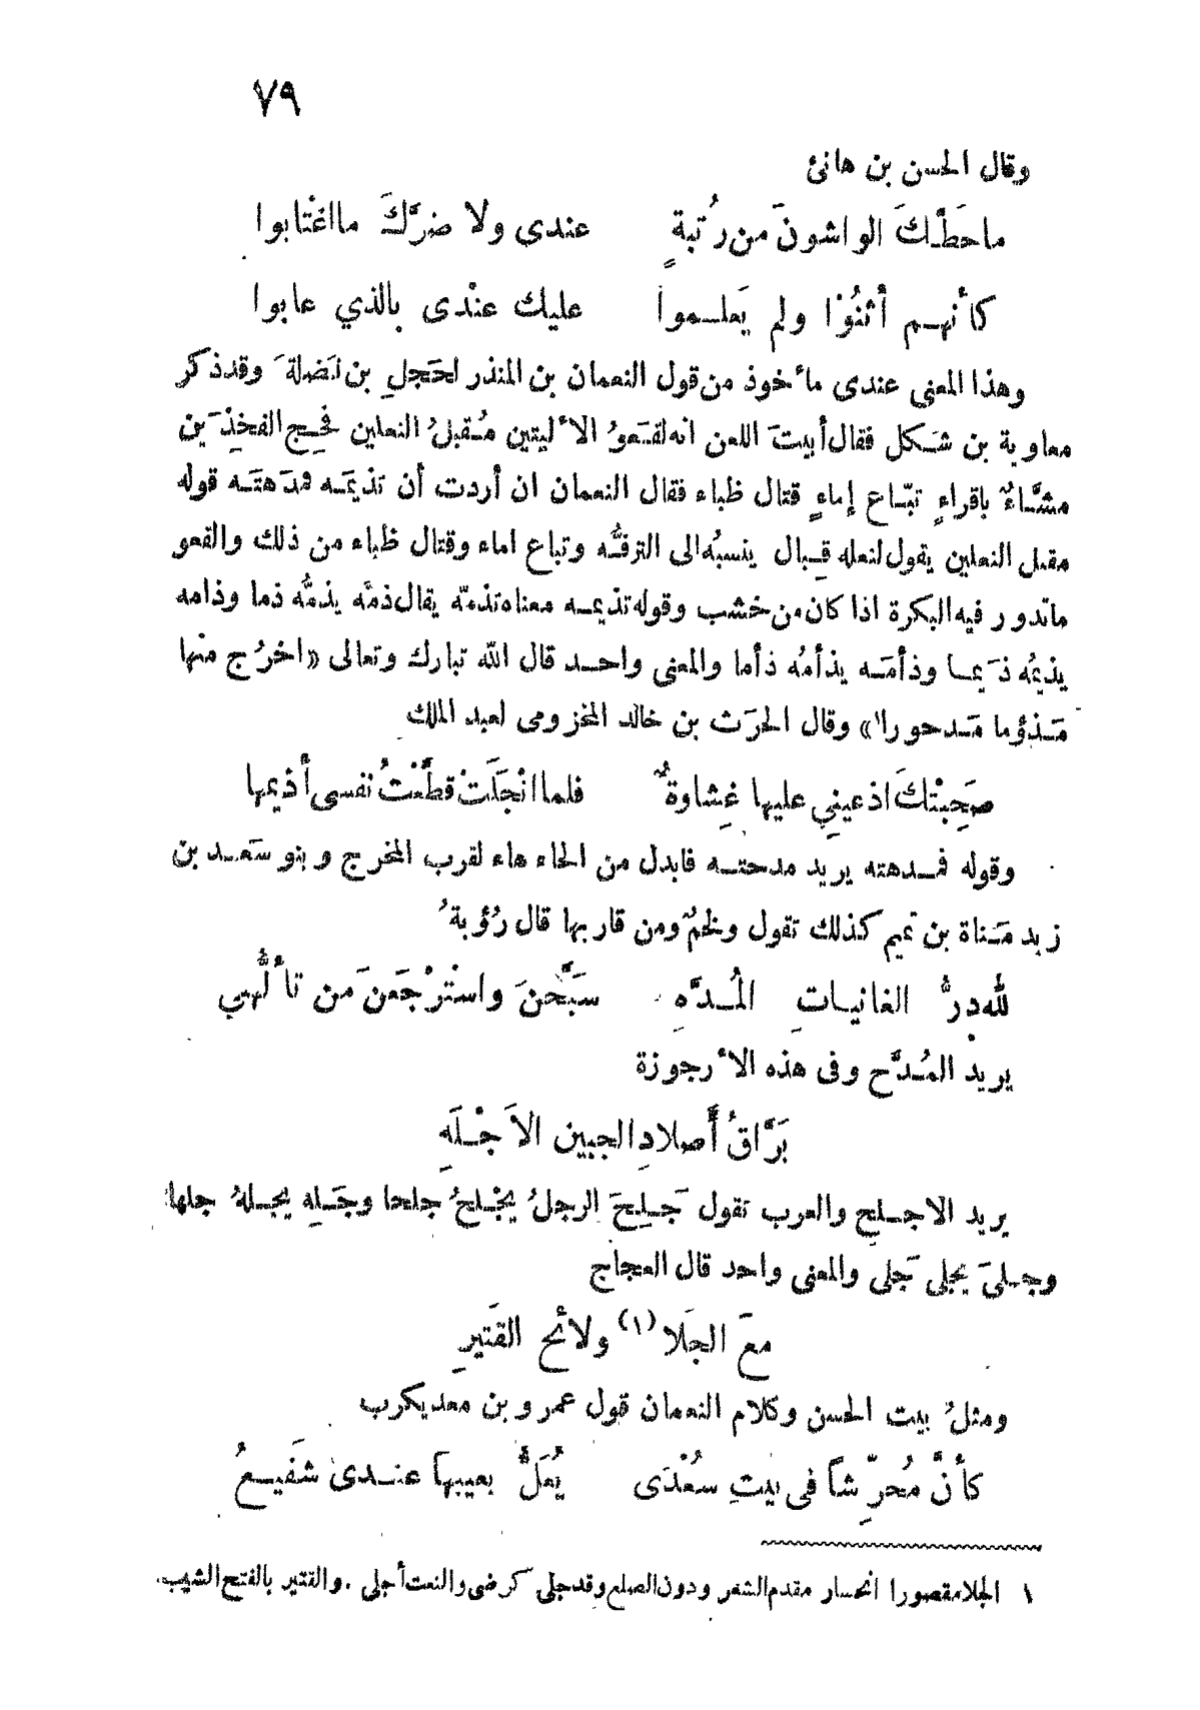 ٧٩
وقال الحسن بن هانئ
ماحَطَّكَ الواشونَ من رُتبةٍ عندى ولا ضرَّكَ مااغْتابوا
كأنهم أثنُوْا ولم يَعلموا عليك عنْدى بالذي عابوا
وهذا المعنى عندى مأخوذ من قول النعمان بن المنذر لحَجلِ بن نَضلةَ وقد ذكر
معاوية بن شَكل فقال أبيتَ اللعن انه لقَعوُ الأليتين مُقبلُ النعلين فحِج الفخذَين
مشَّاءٌ باقراءٍ تبّاع إماءٍ قتال ظباء فقال النعمان ان أردت أن تذيمَه فمَدهتَه قوله
مقبل النعلين يقول لنعله قِبال ينسبُه الى الترفُّه وتباع اماء وقتال ظباء من ذلك والقعو
ماتدور فيه البكرة اذا كان من خشب وقوله تذيمه معناه تذمّه يقال ذمَّه يذمُّه ذما وذامه
يذيمُه ذَيما وذأمَه يذأمُه ذأما والمعنى واحد قال الله تبارك وتعالى «اخرُج منها
مَذؤما مَدحورا» وقال الحرَث بن خالد المخزومى لعبد الملك
صَحِبْتكَ اذ عيني عليها غِشاوةٌ فلما انْجَلَتْ قطَّعْتُ نفسى أذيمها
وقوله فمدهته يريد مدحته فابدل من الحاء هاء لقرب المخرج وبنو سَعد بن
زيد مَناة بن تميم كذلك تقول ولخمٌ ومن قاربها قال رُؤبةُ
لله درُّ الغانياتِ المُدَّهِ سَبَّحْنَ واسْترْجَعنَ من تألُّهي
يريد المُدَّح وفى هذه الأرجوزة
بَرَّاقُ أَصلادِ الجبين الاَجْلَهِ
يريد الاجلح والعرب تقول جَلِحَ الرجلُ يجْلحُ جلحا وجَلِه يجلهُ جلها
وجلىَ يجلى جَلى والمعنى واحد قال العجاج
معَ الجَلا (١) ولائح القَتيرِ
ومثلُ بيت الحسن وكلام النعمان قول عمرو بن معديكرب
كأنَّ مُحرِّشاً فى بيتِ سُعْدَى يُعَلُّ بعيبها عندى شَفيعُ
١ الجلا مقصورا انحسار مقدم الشعر ودون الصلع وقد جلى كرضى والنعت أجلى . والقتير بالفتح الشيب.